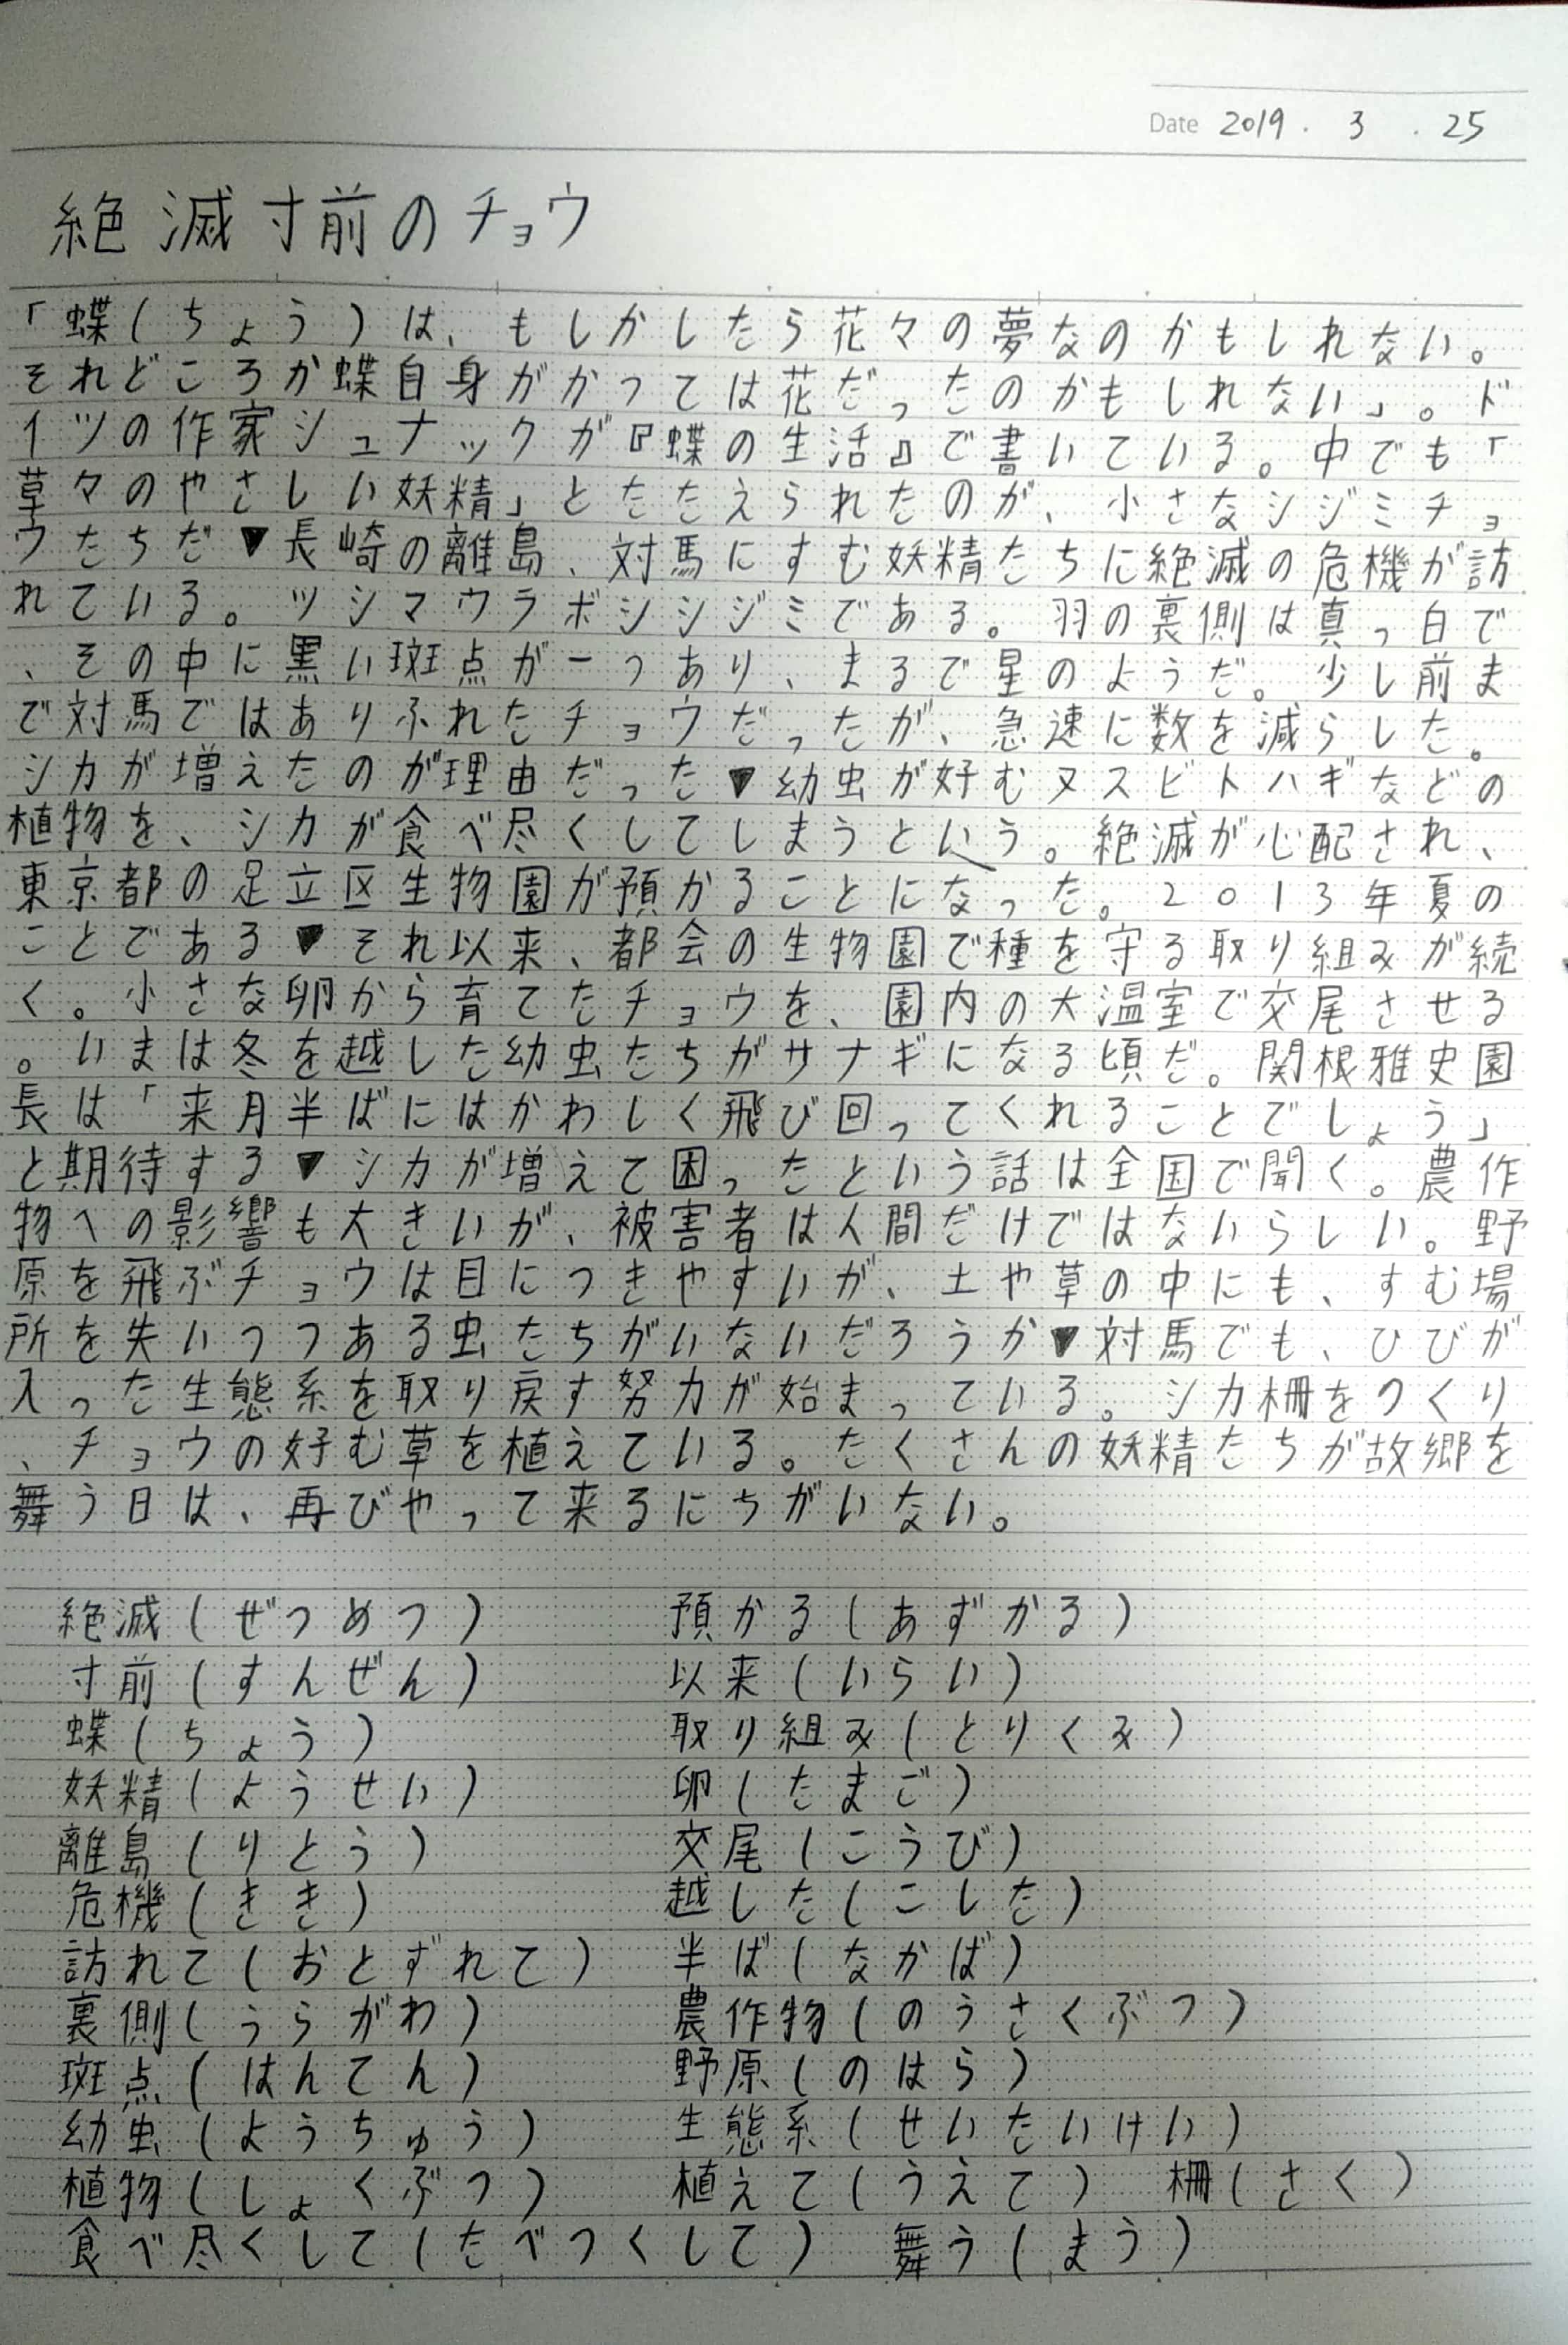 Date 2019. 3. 25
絶滅寸前のチョウ
「蝶(ちょう)は、もしかしたら花々の夢なのかもしれない。
それどころか蝶自身がかつては花だったのかもしれない」。ド
イツの作家シュナックが『蝶の生活』で書いている。中でも「
草々のやさしい妖精」とたたえられたのが、小さなシジミチョ
ウたちだ▼長崎の離島、対馬にすむ妖精たちに絶滅の危機が訪
れている。ツシマウラボシシジミである。羽の裏側は真っ白で
、その中に黒い斑点が一つあり、まるで星のようだ。少し前ま
で対馬ではありふれたチョウだったが、急速に数を減らした。
シカが増えたのが理由だった▼幼虫が好むヌスビトハギなどの
植物を、シカが食べ尽くしてしまうという。絶滅が心配され、
東京都の足立区生物園が預かることになった。2013年夏の
ことである▼それ以来、都会の生物園で種を守る取り組みが続
く。小さな卵から育てたチョウを、園内の大温室で交尾させる
。いまは冬を越した幼虫たちがサナギになる頃だ。関根雅史園
長は「来月半ばにはかわしく飛び回ってくれることでしょう」
と期待する▼シカが増えて困ったという話は全国で聞く。農作
物への影響も大きいが、被害者は人間だけではないらしい。野
原を飛ぶチョウは目につきやすいが、土や草の中にも、すむ場
所を失いつつある虫たちがいないだろうか▼対馬でも、ひびが
入った生態系を取り戻す努力が始まっている。シカ柵をつくり
、チョウの好む草を植えている。たくさんの妖精たちが故郷を
舞う日は、再びやって来るにちがいない。
絶滅(ぜつめつ) 預かる(あずかる)
寸前(すんぜん) 以来(いらい)
蝶(ちょう) 取り組み(とりくみ)
妖精(ようせい) 卵(たまご)
離島(りとう) 交尾(こうび)
危機(きき) 越した(こした)
訪れて(おとずれて) 半ば(なかば)
裏側(うらがわ) 農作物(のうさくぶつ)
斑点(はんてん) 野原(のはら)
幼虫(ようちゅう) 生態系(せいたいけい)
植物(しょくぶつ) 植えて(うえて) 柵(さく)
食べ尽くして(たべつくして) 舞う(まう)